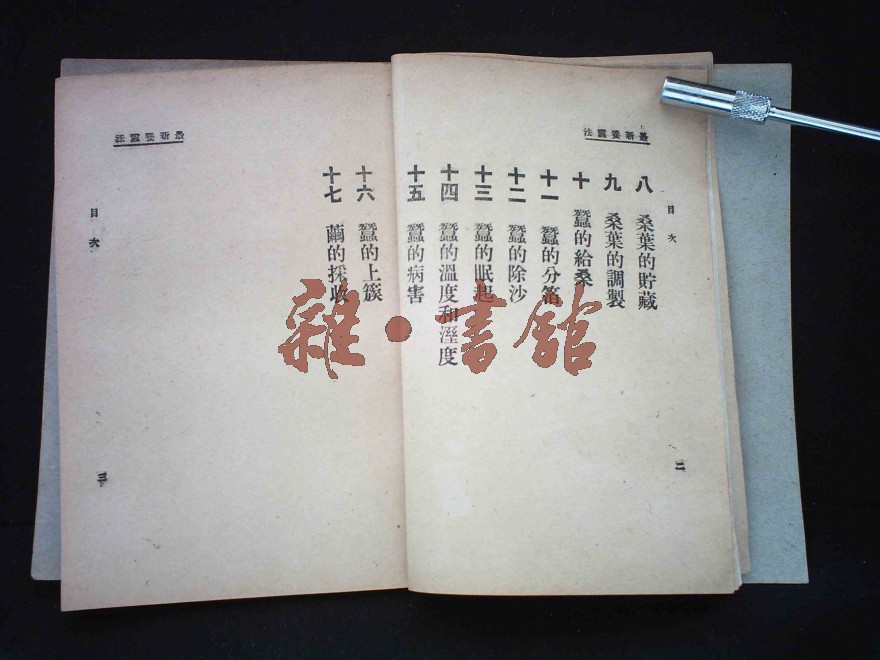 最新養蠶法
目次
八 桑葉的貯藏
九 桑葉的調製
十 蠶的給桑
十一 蠶的分箔
十二 蠶的除沙
十三 蠶的眠起
十四 蠶的溫度和溼度
十五 蠶的病害
二
最新養蠶法
十六 蠶的上簇
十七 繭的採收
目次
三
雜·書館